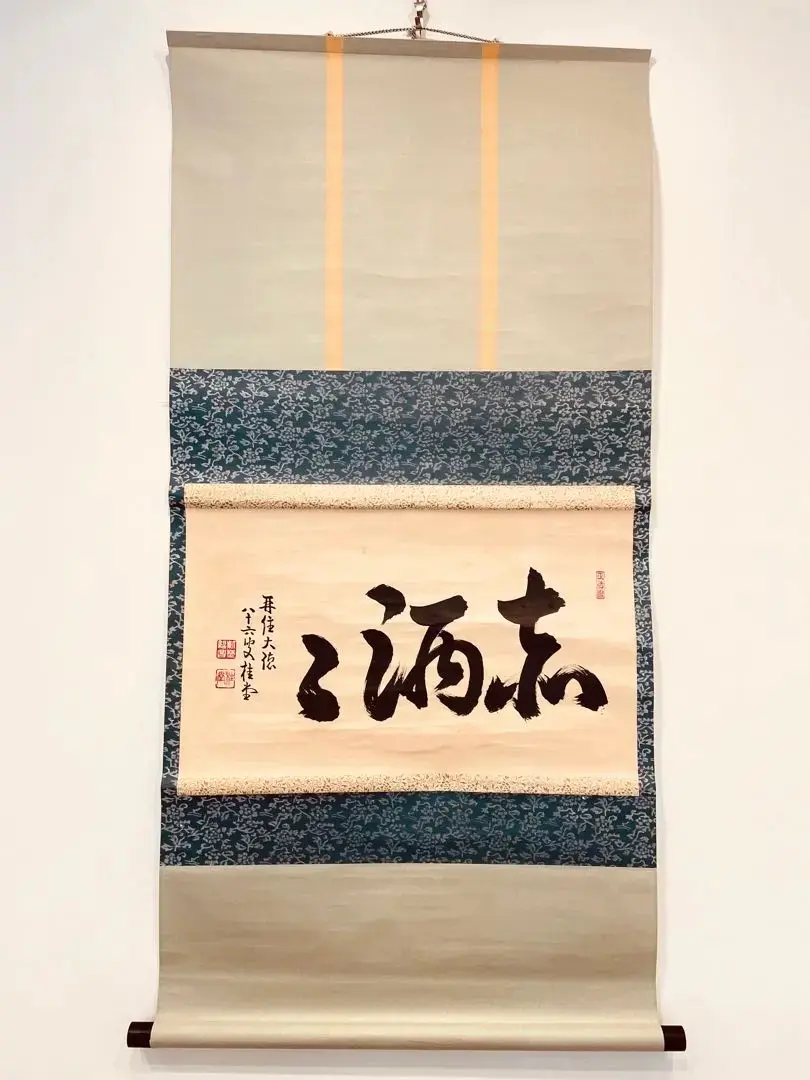 赤洒〻
再住大徳
八十六叟桂堂